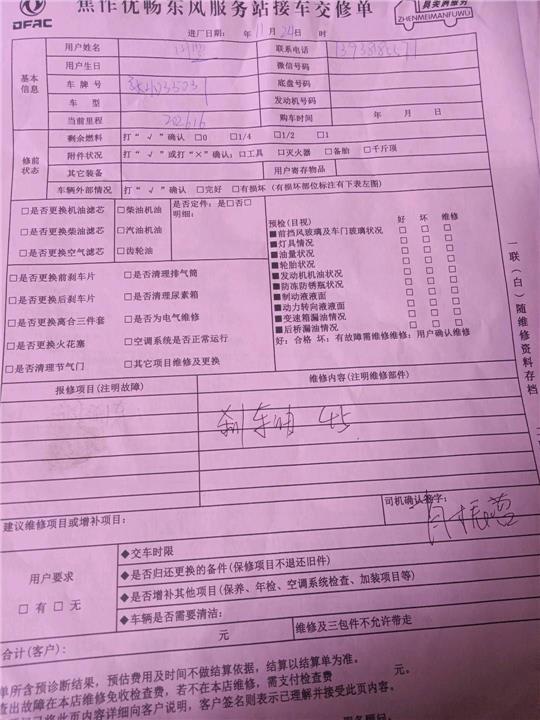 焦作优畅东风服务站接车交修单
DFAC
真美满服务
ZHENMEIMANFUWU
进厂日期: 年 11 月 24 日 时
基本信息
用户姓名 联系电话
用户生日 微信号码
车牌号 底盘号码
车型 发动机号码
当前里程 202616 购车时间 年 月 日
修前状态
剩余燃料 打“√”确认 □0 □1/4 □1/2 □1
附件状况 打“√”或打“×”确认:□工具 □灭火器 □备胎 □千斤顶
其它装备 用户寄存物品
车辆外部情况 打“√”确认 □完好 □有损坏(有损坏部位标注有下表左图)
□是否更换机油滤芯 □柴油机油 是否定件:是□否□
明细:
□是否更换柴油滤芯 □汽油机油
□是否更换空气滤芯 □齿轮油
□是否更换前刹车片 □是否清理排气筒
□是否更换后刹车片 □是否清理尿素箱
□是否更换离合三件套 □是否为电气维修
□是否更换火花塞 □空调系统是否正常运行
□是否清理节气门 □其它项目维修及更换
预检(目视) 好 坏 维修
■前挡风玻璃及车门玻璃状况 □ □ □
■灯具情况 □ □ □
■油量状况 □ □ □
■轮胎状况 □ □ □
■发动机机油状况 □ □ □
■防冻防锈瓶状况 □ □ □
■制动液液面 □ □ □
■动力转向液液面 □ □ □
■变速箱漏油情况 □ □ □
■后桥漏油情况 □ □ □
好:合格 坏:有故障需维修维修:用户确认维修
一联(白)随维修资料存档
报修项目(注明故障) 维修内容(注明维修部件)
刹车油
司机确认签字:
建议维修项目或增补项目:
用户要求
□有 □无
◆交车时限
◆是否归还更换的备件(保修项目不退还旧件)
◆是否增补其他项目(保养、年检、空调系统检查、加装项目等)
◆车辆是否需要清洁:
合计(客户): 元 维修及三包件不允许带走
单所含预诊断结果,预估费用及时间不做结算依据,结算以结算单为准。
查出故障在本店维修免收检查费,若不在本店维修,需支付检查费 元。
将此页内容详细向客户说明,客户签名则表示已理解并接受此页内容。